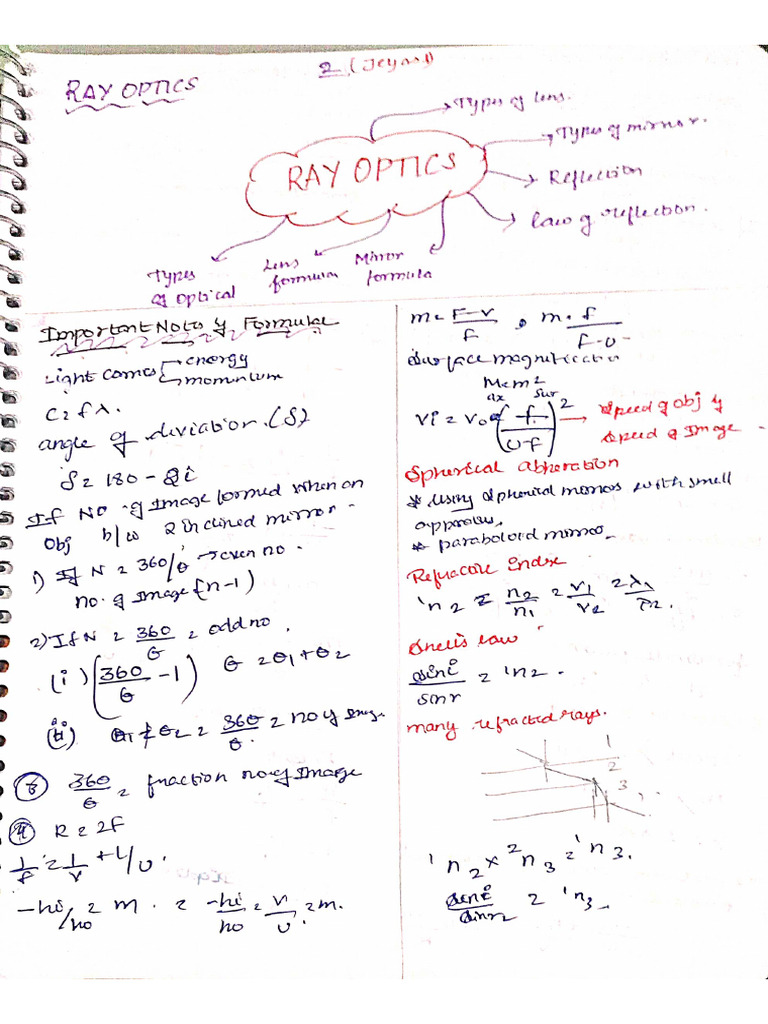 RAY OPTICS
Types of lens.
Types of mirror.
RAY OPTICS
Reflection
law of reflection.
Types of Optical
Lens formula
Mirror formula
Important Notes of Formulae
Light comes energy
momentum
C = fλ.
angle of deviation. (δ)
δ = 180 - 2i
If No of Image formed when an
Obj b/w 2 inclined mirror.
1) If N = 360/θ → even no.
no. of Image (n-1)
2) If N = 360/θ = odd no.
(i) (360/θ - 1) θ = θ1 + θ2
(ii) θ1 ≠ θ2 = 360/θ = no of Image
(3) 360/θ = fraction no of Image
(4) R = 2F
1/f = 1/v + 1/u
-hi/ho = m. = -hi/ho = v/u = m.
m = F-v/f , m = f/f-u
Surface magnification
vi = vo (-f/u-f)² → Speed of obj of
Speed of Image
Spherical abberation
* Using spherical mirrors with small
* paraboloid mirror
Refractive Index
¹n2 = n2/n1 = v1/v2 = λ1/λ2.
Snell's law
sin i/sin r = ¹n2.
many refracted rays.
1
2
3
¹n2 × ²n3 = ¹n3.
sin i/sin r2 = ¹n3